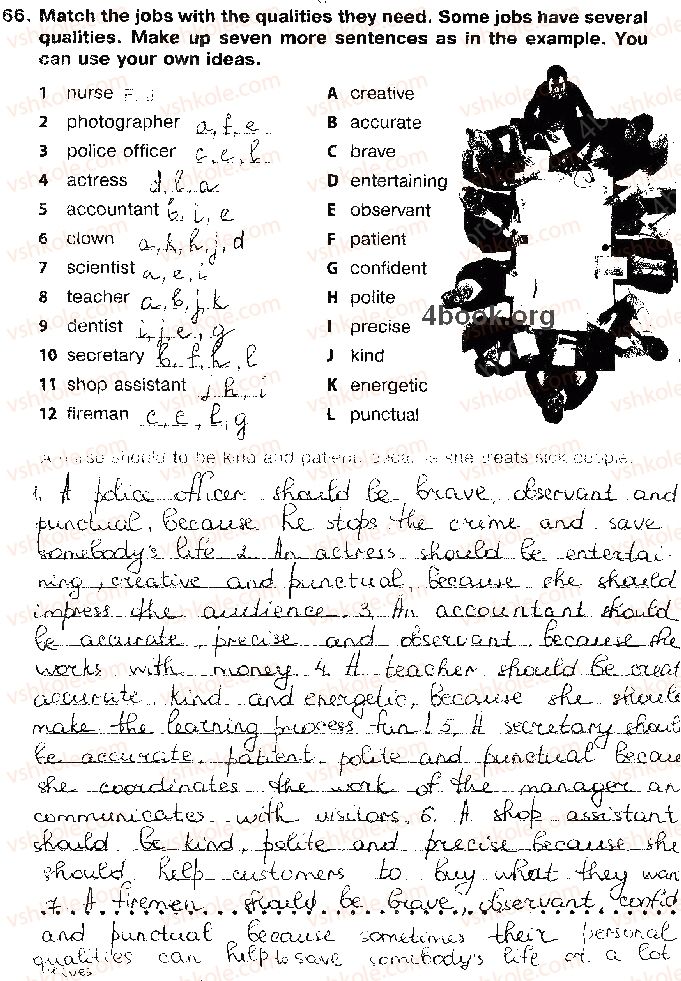 66. Match the jobs with the qualities they need. Some jobs have several
qualities. Make up seven more sentences as in the example. You
can use your own ideas.
1 nurse F, J
2 photographer a, f, e
3 police officer c, e, l
4 actress d, l, a
5 accountant b, i, e
6 clown a, k, h, j, d
7 scientist a, e, i
8 teacher a, b, j, k
9 dentist i, j, e, g
10 secretary b, f, h, l
11 shop assistant j, h, i
12 fireman c, e, l, g
A creative
B accurate
C brave
D entertaining
E observant
F patient
G confident
H polite
I precise
J kind
K energetic
L punctual
4book.org
A nurse should to be kind and patient, because she treats sick people.
1. A police officer should be brave, observant and
punctual, because he stops the crime and save
somebody's life 2. An actress should be entertai-
ning, creative and punctual, because she should
impress the audience. 3. An accountant should
be accurate, precise and observant, because she
works with money. 4. A teacher should be creat
accurate, kind and energetic, because she shoul
make the learning process fun! 5. A secretary shoul
be accurate, patient, polite and punctual becau
she coordinates the work of the manager an
communicates with visitors. 6. A shop assistant
should be kind, polite and precise because she
should help customers to buy what they wan
7. A firemen should be brave, observant, confid
and punctual because sometimes their personal
qualities can help to save somebody's life or a lot
lives